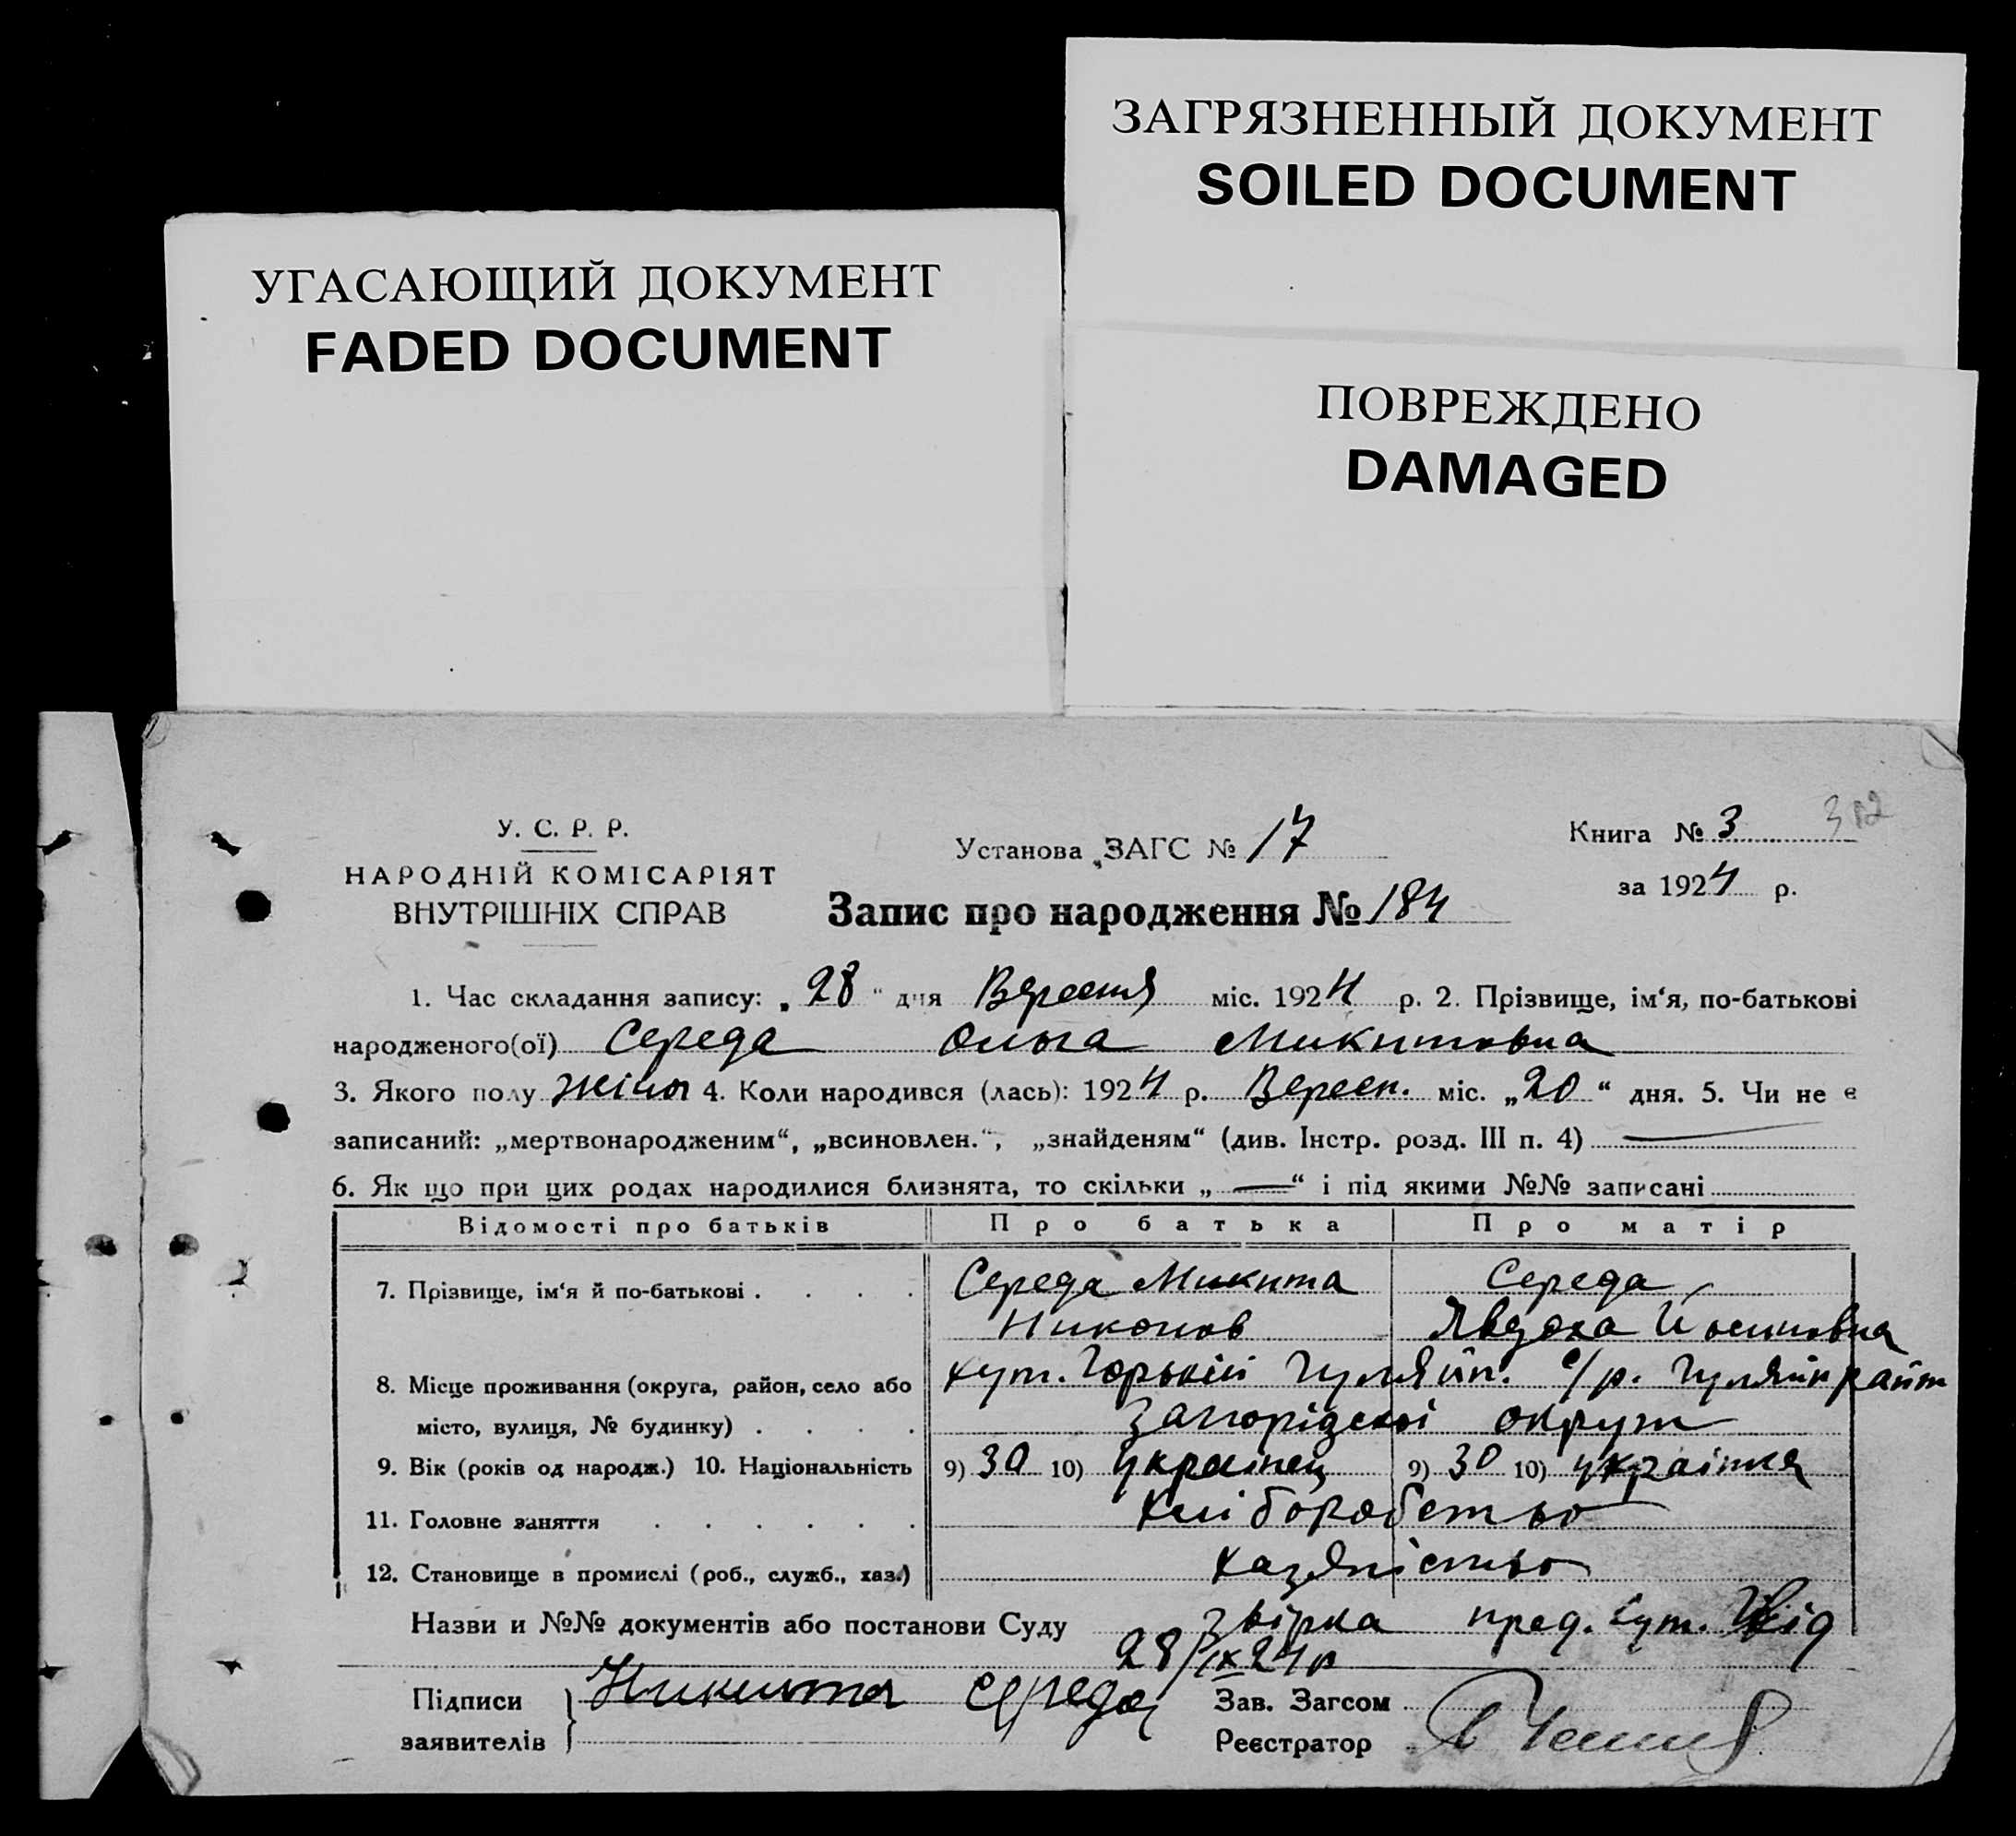 ЗАГРЯЗНЕННЫЙ ДОКУМЕНТ
SOILED DOCUMENT
УГАСАЮЩИЙ ДОКУМЕНТ
FADED DOCUMENT
ПОВРЕЖДЕНО
DAMAGED
У. С. Р. Р.
НАРОДНІЙ КОМІСАРІЯТ
ВНУТРІШНІХ СПРАВ
Установа ЗАГС № 17
Запис про народження № 184
Книга № 3 312
за 1924 р.
1. Час складання запису: „28“ дня Вересня міс. 1924 р. 2. Прізвище, ім‘я, по-батькові
народженого(ої) Середа Ольга Микитовна
3. Якого полу жіноч 4. Коли народився (лась): 1924 р. Вересн. міс. „20“ дня. 5. Чи не є
записаний: „мертвонародженим“, „всиновлен.“, „знайденям“ (див. Інстр. розд. III п. 4) —
6. Як що при цих родах народилися близнята, то скільки „—“ і під якими №№ записані
Відомості про батьків Про батька Про матір
7. Прізвище, ім‘я й по-батькові . . . . Середа Микита Середа
Никонов Явдоха Йосиповна
8. Місце проживання (округа, район, село або хут. Горький Гуляйп. с/р. Гуляйп район
місто, вулиця, № будинку) . . . . Запорідської округи
9. Вік (років од народж.) 10. Національність 9) 30 10) Українец 9) 30 10) українка
11. Головне заняття . . . . . . хліборобство
12. Становище в промислі (роб., служб., хаз.) хазяйство
Назви и №№ документів або постанови Суду звірка пред. хут. від
28/IX 24 р
Підписи заявителів } Никита Середа
Зав. Загсом
Реєстратор